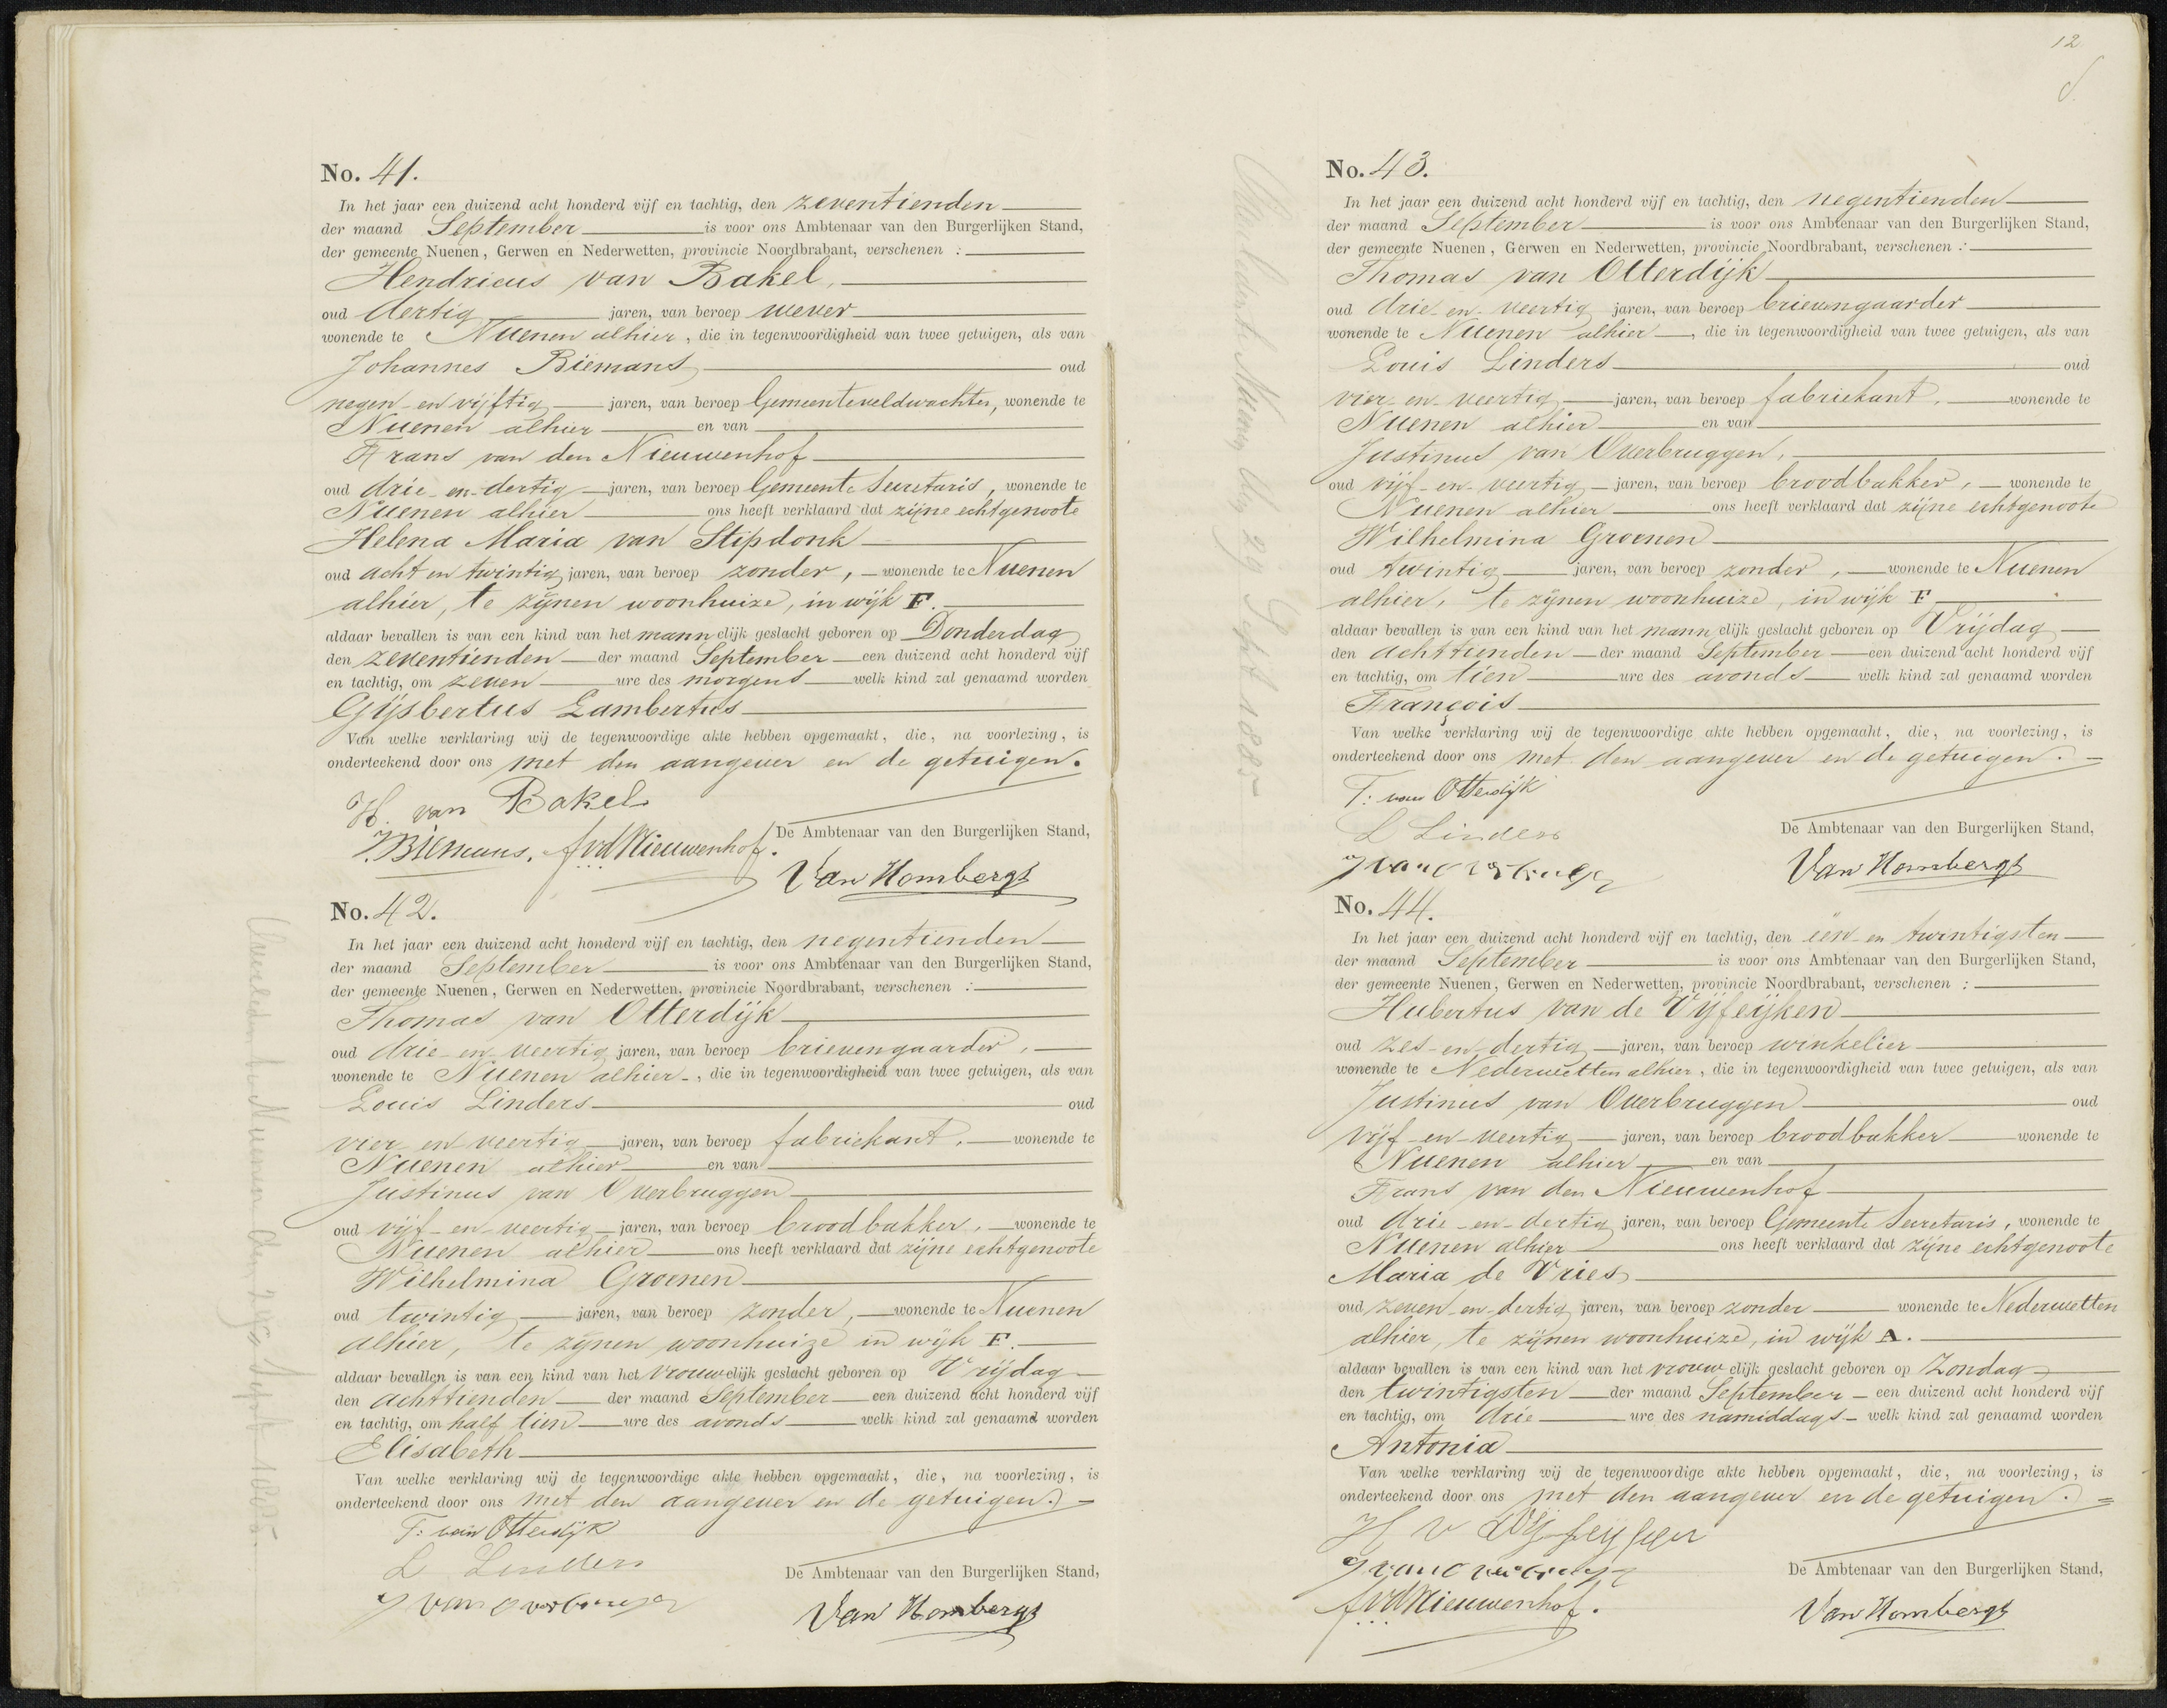 No. 41.
In het jaar een duizend acht honderd vijf en tachtig, den zeventienden
der maand September is voor ons Ambtenaar van den Burgerlijken Stand,
der gemeente Nuenen, Gerwen en Nederwetten, provincie Noordbrabant, verschenen :
Hendricus van Bakel,
oud dertig jaren, van beroep wever
wonende te Nuenen alhier, die in tegenwoordigheid van twee getuigen, als van
Johannes Biemans oud
negen-en vijftig jaren, van beroep Gemeenteveldwachter, wonende te
Nuenen alhier en van
Frans van den Nieuwenhof
oud drie-en-dertig jaren, van beroep Gemeente Secretaris, wonende te
Nuenen alhier ons heeft verklaard dat zijne echtgenoote
Helena Maria van Stipdonk
oud acht en twintig jaren, van beroep zonder, wonende te Nuenen
alhier, te zijnen woonhuize, in wijk F.
aldaar bevallen is van een kind van het mannelijk geslacht geboren op Donderdag
den zeventienden der maand September een duizend acht honderd vijf
en tachtig, om zeven ure des morgens welk kind zal genaamd worden
Gijsbertus Lambertus
Van welke verklaring wij de tegenwoordige akte hebben opgemaakt, die, na voorlezing, is
onderteekend door ons met den aangever en de getuigen.
H. van Bakel
J. Biemans. FvdNieuwenhof.
De Ambtenaar van den Burgerlijken Stand,
Van Hombergh
No. 42.
In het jaar een duizend acht honderd vijf en tachtig, den negentienden
der maand September is voor ons Ambtenaar van den Burgerlijken Stand,
der gemeente Nuenen, Gerwen en Nederwetten, provincie Noordbrabant, verschenen :
Thomas van Otterdijk
oud drie-en-veertig jaren, van beroep brievengaarder,
wonende te Nuenen alhier, die in tegenwoordigheid van twee getuigen, als van
Louis Linders oud
vier en veertig jaren, van beroep fabriekant, wonende te
Nuenen alhier en van
Justinus van Overbruggen
oud vijf-en-veertig jaren, van beroep broodbakker, wonende te
Nuenen alhier ons heeft verklaard dat zijne echtgenoote
Wilhelmina Groenen
oud twintig jaren, van beroep zonder, wonende te Nuenen
alhier, te zijnen woonhuize in wijk F.
aldaar bevallen is van een kind van het vrouwelijk geslacht geboren op Vrijdag
den achttienden der maand September een duizend acht honderd vijf
en tachtig, om half tien ure des avonds welk kind zal genaamd worden
Elisabeth
Van welke verklaring wij de tegenwoordige akte hebben opgemaakt, die, na voorlezing, is
onderteekend door ons met den aangever en de getuigen.
T: van Otterdijk
L Linders
J van Overbrugge
De Ambtenaar van den Burgerlijken Stand,
Van Hombergh
Overleden te Nuenen den Sept 1885
12
No. 43.
In het jaar een duizend acht honderd vijf en tachtig, den negentienden
der maand September is voor ons Ambtenaar van den Burgerlijken Stand,
der gemeente Nuenen, Gerwen en Nederwetten, provincie Noordbrabant, verschenen :
Thomas van Otterdijk
oud drie-en-veertig jaren, van beroep brievengaarder
wonende te Nuenen alhier, die in tegenwoordigheid van twee getuigen, als van
Louis Linders oud
vier-en-veertig jaren, van beroep fabriekant, wonende te
Nuenen alhier en van
Justinus van Overbruggen,
oud vijf-en-veertig jaren, van beroep broodbakker, wonende te
Nuenen alhier ons heeft verklaard dat zijne echtgenoote
Wilhelmina Groenen
oud twintig jaren, van beroep zonder, wonende te Nuenen
alhier, te zijnen woonhuize, in wijk F
aldaar bevallen is van een kind van het mannelijk geslacht geboren op Vrijdag
den achttienden der maand September een duizend acht honderd vijf
en tachtig, om tien ure des avonds welk kind zal genaamd worden
François
Van welke verklaring wij de tegenwoordige akte hebben opgemaakt, die, na voorlezing, is
onderteekend door ons met den aangever en de getuigen.
T: van Otterdijk
L Linders
De Ambtenaar van den Burgerlijken Stand,
Van Hombergh
Overleden te Nuenen den 29 Sept 1885
No. 44.
In het jaar een duizend acht honderd vijf en tachtig, den één-en twintigsten
der maand September is voor ons Ambtenaar van den Burgerlijken Stand,
der gemeente Nuenen, Gerwen en Nederwetten, provincie Noordbrabant, verschenen :
Hubertus van de Vijfeijken
oud zes-en-dertig jaren, van beroep winkelier
wonende te Nederwetten alhier, die in tegenwoordigheid van twee getuigen, als van
Justinus van Overbruggen oud
vijf-en-veertig jaren, van beroep broodbakker wonende te
Nuenen alhier en van
Frans van den Nieuwenhof
oud drie-en-dertig jaren, van beroep Gemeente Secretaris, wonende te
Nuenen alhier ons heeft verklaard dat zijne echtgenoote
Maria de Vries
oud zeven-en-dertig jaren, van beroep zonder wonende te Nederwetten
alhier, te zijnen woonhuize, in wijk A.
aldaar bevallen is van een kind van het vrouwelijk geslacht geboren op Zondag
den twintigsten der maand September een duizend acht honderd vijf
en tachtig, om drie ure des namiddags welk kind zal genaamd worden
Antonia
Van welke verklaring wij de tegenwoordige akte hebben opgemaakt, die, na voorlezing, is
onderteekend door ons met den aangever en de getuigen.
FvdNieuwenhof.
De Ambtenaar van den Burgerlijken Stand,
Van Hombergh